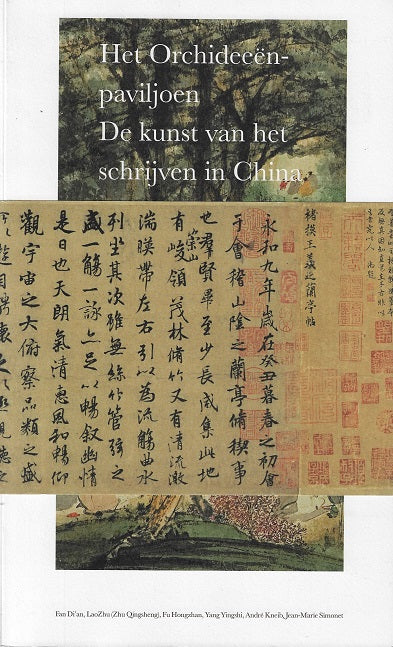 Het Orchideeën-
paviljoen
De kunst van het
schrijven in China
褚摸王羲之蘭亭帖
永和九年歲在癸丑暮春之初會
于會稽山陰之蘭亭脩稧事
也羣賢畢至少長咸集此地
崇山
有峻領茂林脩竹又有清流激
湍暎帶左右引以為流觴曲水
列坐其次雖無絲竹管弦之
盛一觴一詠亦足以暢敘幽情
是日也天朗氣清惠風和暢仰
觀宇宙之大俯察品類之盛
Fan Di'an, LaoZhu (Zhu Qingsheng), Fu Hongzhan, Yang Yingshi, André Kneib, Jean-Marie Simonet